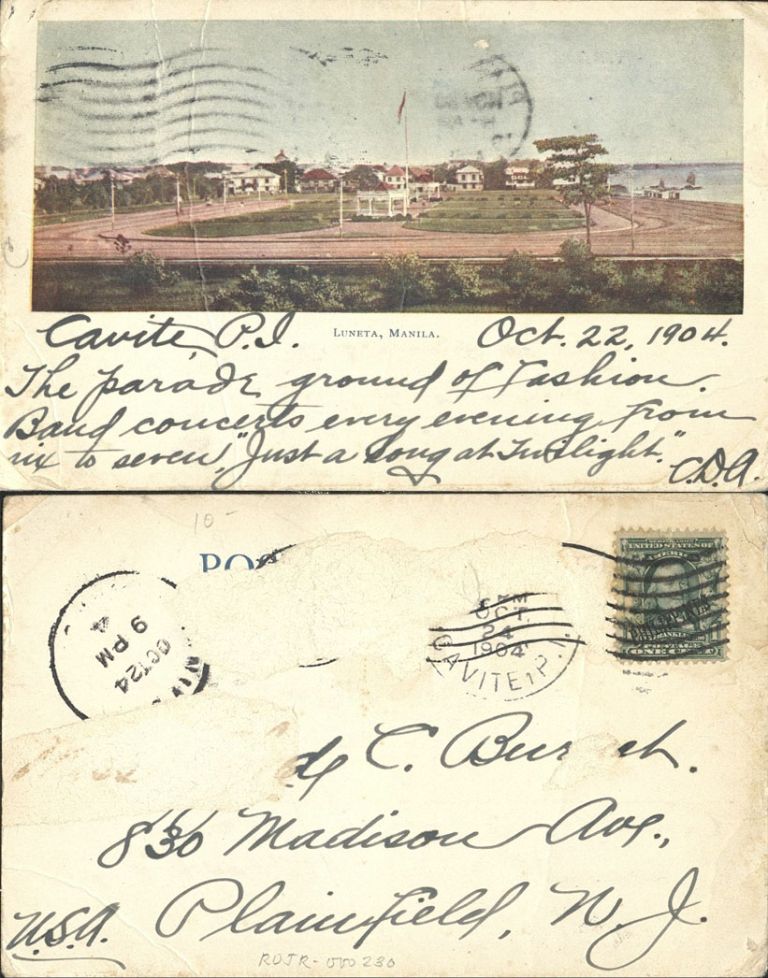 Cavite P.I.
LUNETA, MANILA.
Oct. 22, 1904.
The parade ground of Fashion.
Band concerts every evening from
six to seven, "Just a song at Twilight."
C.D.A.
10-
POS
9 PM
OCT 24
4
PM
OCT.
24
1904
CAVITE, P.I.
UNITED STATES OF
AMERICA
PHILIPPINES
FRANKLIN
POSTAGE
ONE CENT
C. Bur ch.
830 Madison Ave.,
Plainfield, N.J.
U.S.A.